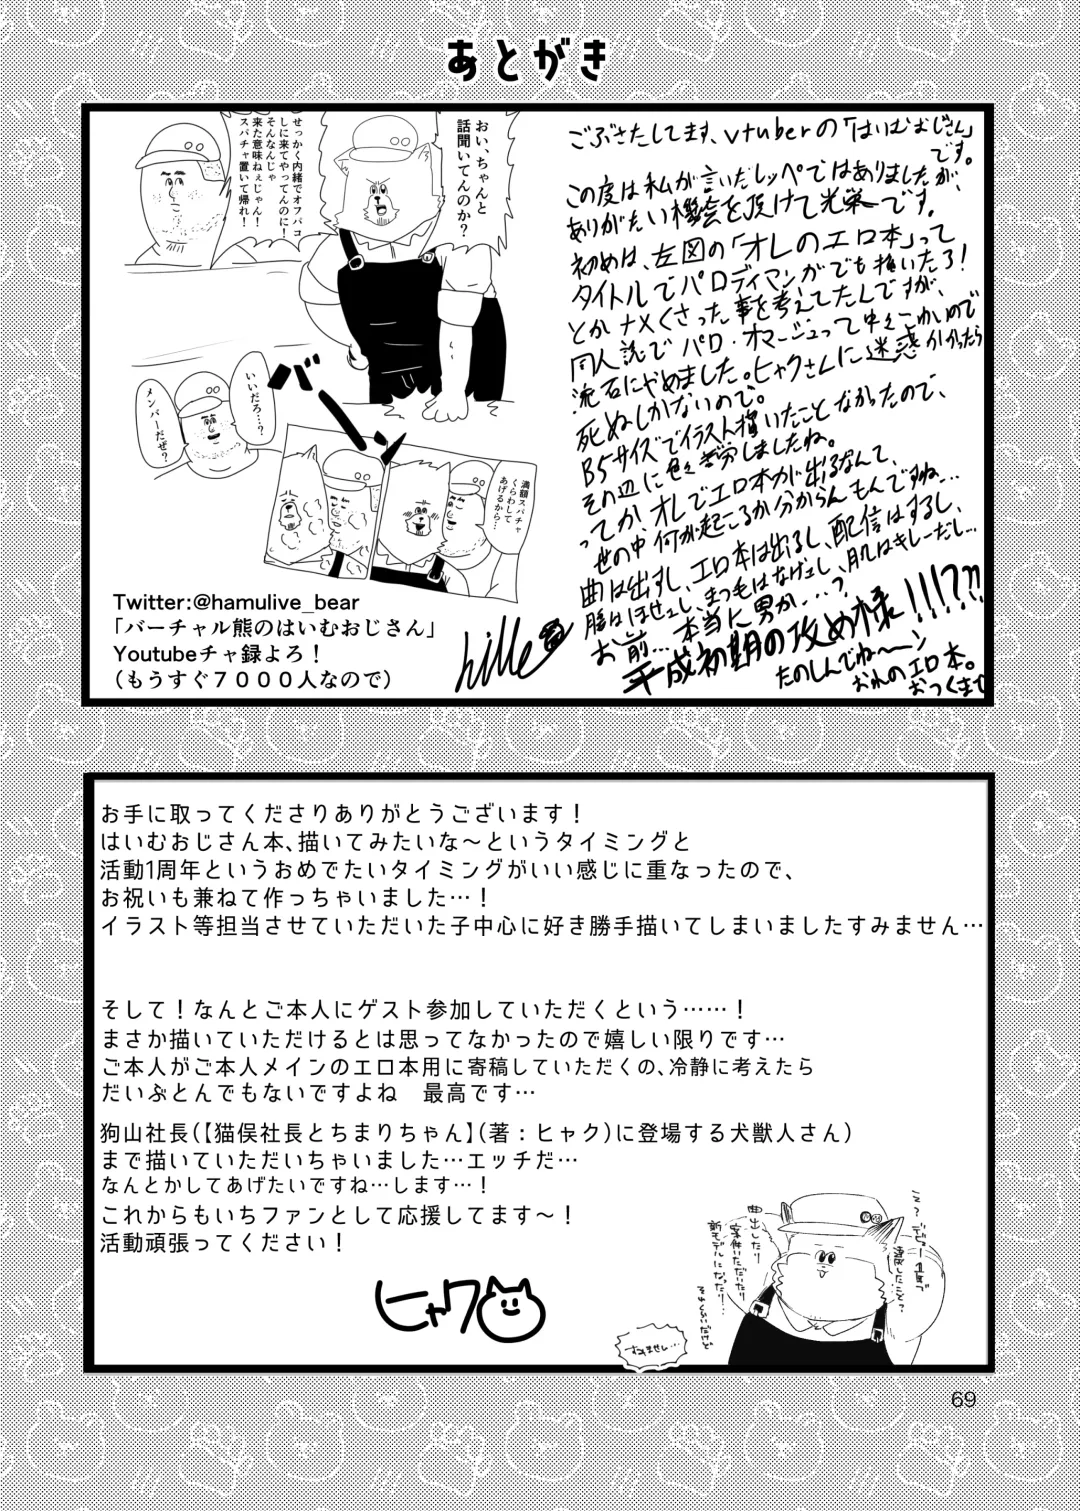 あとがき
おい、ちゃんと
話聞いてんのか？
せっかく内緒でオフパコ
しに来てやってんのに！
そんなんじゃ
来た意味ねぇじゃん！
スパチャ置いて帰れ！
バン
いいだろ…？
メンバーだぜ？
満額スパチャ
くらわして
あげるから…
Twitter:@hamulive_bear
「バーチャル熊のはいむおじさん」
Youtubeチャ録よろ！
（もうすぐ７０００人なので）
ごぶさたしてます、vtuberの「はいむおじさん」
です。
この度は私が言いだしッペではありましたが、
ありがたい機会を頂けて光栄です。
初めは、左図の「オレのエロ本」って
タイトルでパロディマンガでも描いたろ！
とかナメくさった事を考えてたんですが、
同人誌でパロ・オマージュって中々こわいので
流石にやめました。ヒャクさんに迷惑かかったら
死ぬしかないので。
B5サイズでイラスト描いたことなかったので、
その辺に色々苦労しましたね。
ってか、オレでエロ本が出るなんて、
世の中何が起こるか分からんもんですね…
曲は出すし、エロ本は出るし、配信はするし、
腰はほせェし、まつ毛はなげェし、肌はキレーだし…
お前…本当に男か…？
平成初期の攻め様!!!??
たのしんでね〜ン
おれのエロ本。
おつくまで
hille
お手に取ってくださりありがとうございます！
はいむおじさん本、描いてみたいな〜というタイミングと
活動1周年というおめでたいタイミングがいい感じに重なったので、
お祝いも兼ねて作っちゃいました…！
イラスト等担当させていただいた子中心に好き勝手描いてしまいましたすみません…
そして！なんとご本人にゲスト参加していただくという……！
まさか描いていただけるとは思ってなかったので嬉しい限りです…
ご本人がご本人メインのエロ本用に寄稿していただくの、冷静に考えたら
だいぶとんでもないですよね　最高です…
狗山社長（【猫俣社長とちまりちゃん】（著：ヒャク）に登場する犬獣人さん）
まで描いていただいちゃいました…エッチだ…
なんとかしてあげたいですね…します…！
これからもいちファンとして応援してます〜！
活動頑張ってください！
ヒャク
え？デビュー1年で
達成したこと？
曲出したり
案件いただいたり
新モデルになったり…
それくらいだけど
すみません…
69